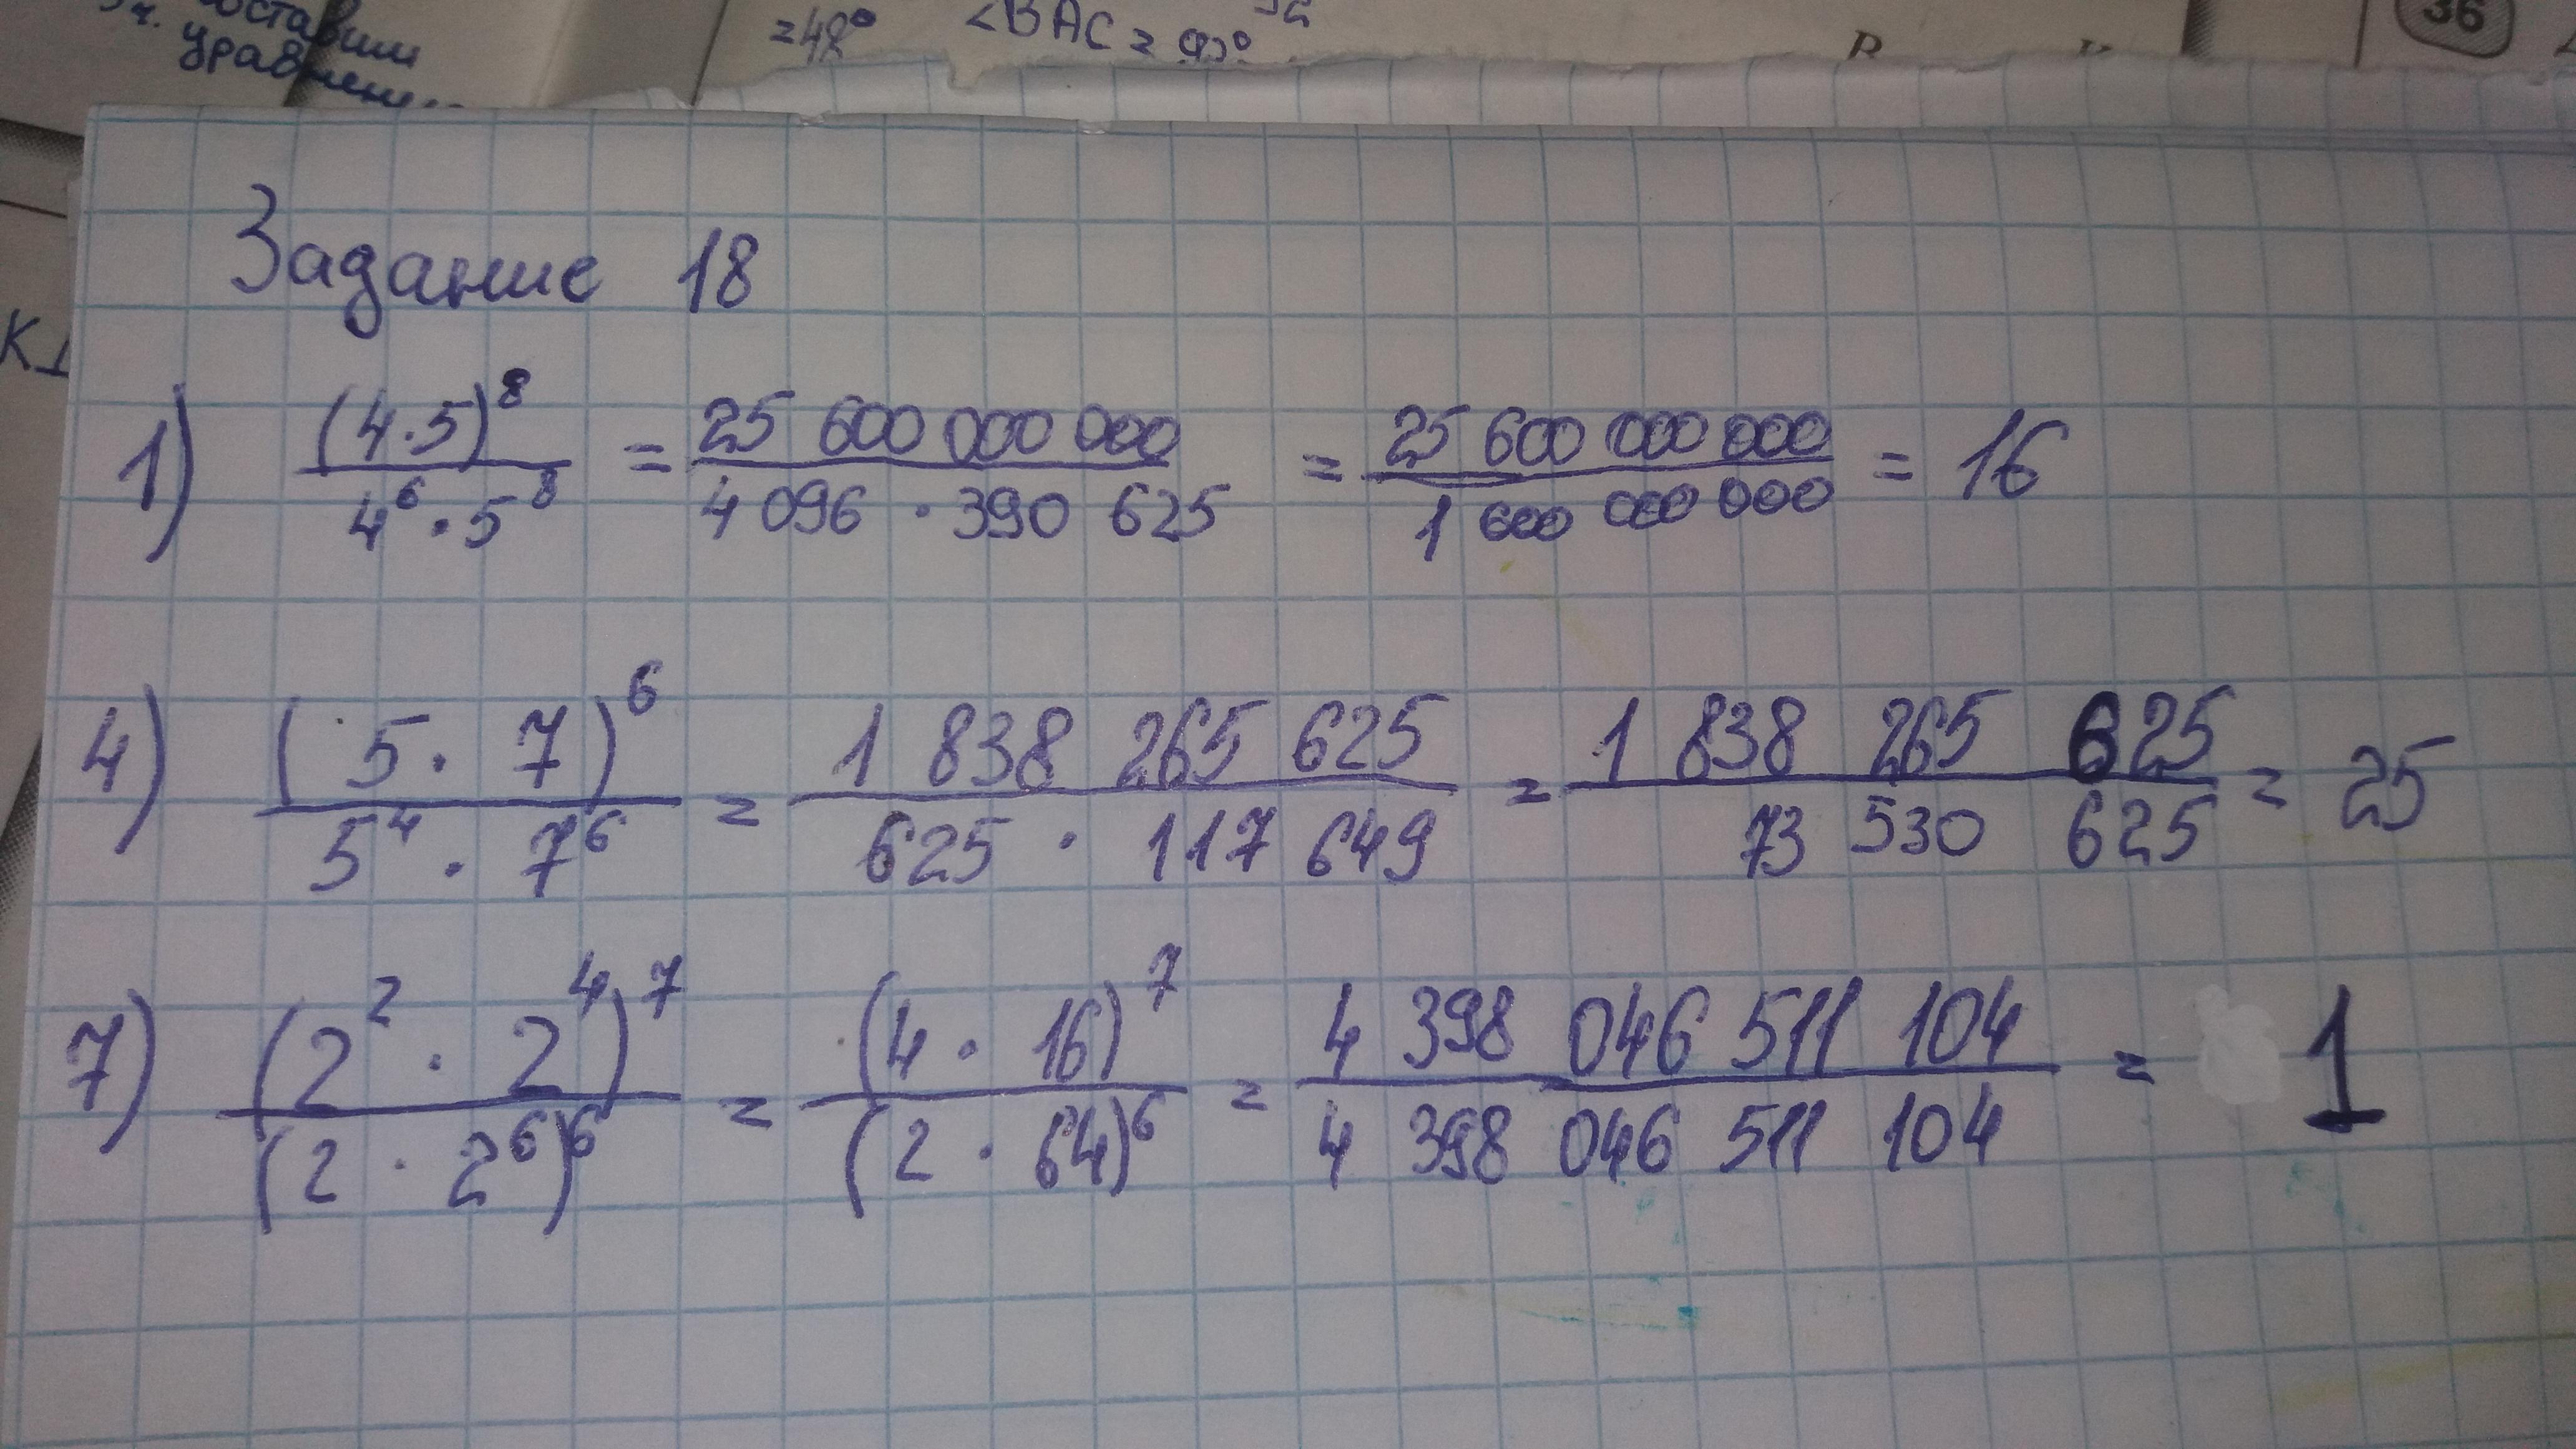 составим
уравнени
=48° <BAC = 90°
36
Задание 18
1) (4·5)^8 / 4^6 · 5^8 = 25 600 000 000 / 4 096 · 390 625 = 25 600 000 000 / 1 600 000 000 = 16
4) (5 · 7)^6 / 5^4 · 7^6 = 1 838 265 625 / 625 · 117 649 = 1 838 265 625 / 73 530 625 = 25
7) (2^2 · 2^4)^7 / (2 · 2^6)^6 = (4 · 16)^7 / (2 · 64)^6 = 4 398 046 511 104 / 4 398 046 511 104 = 1